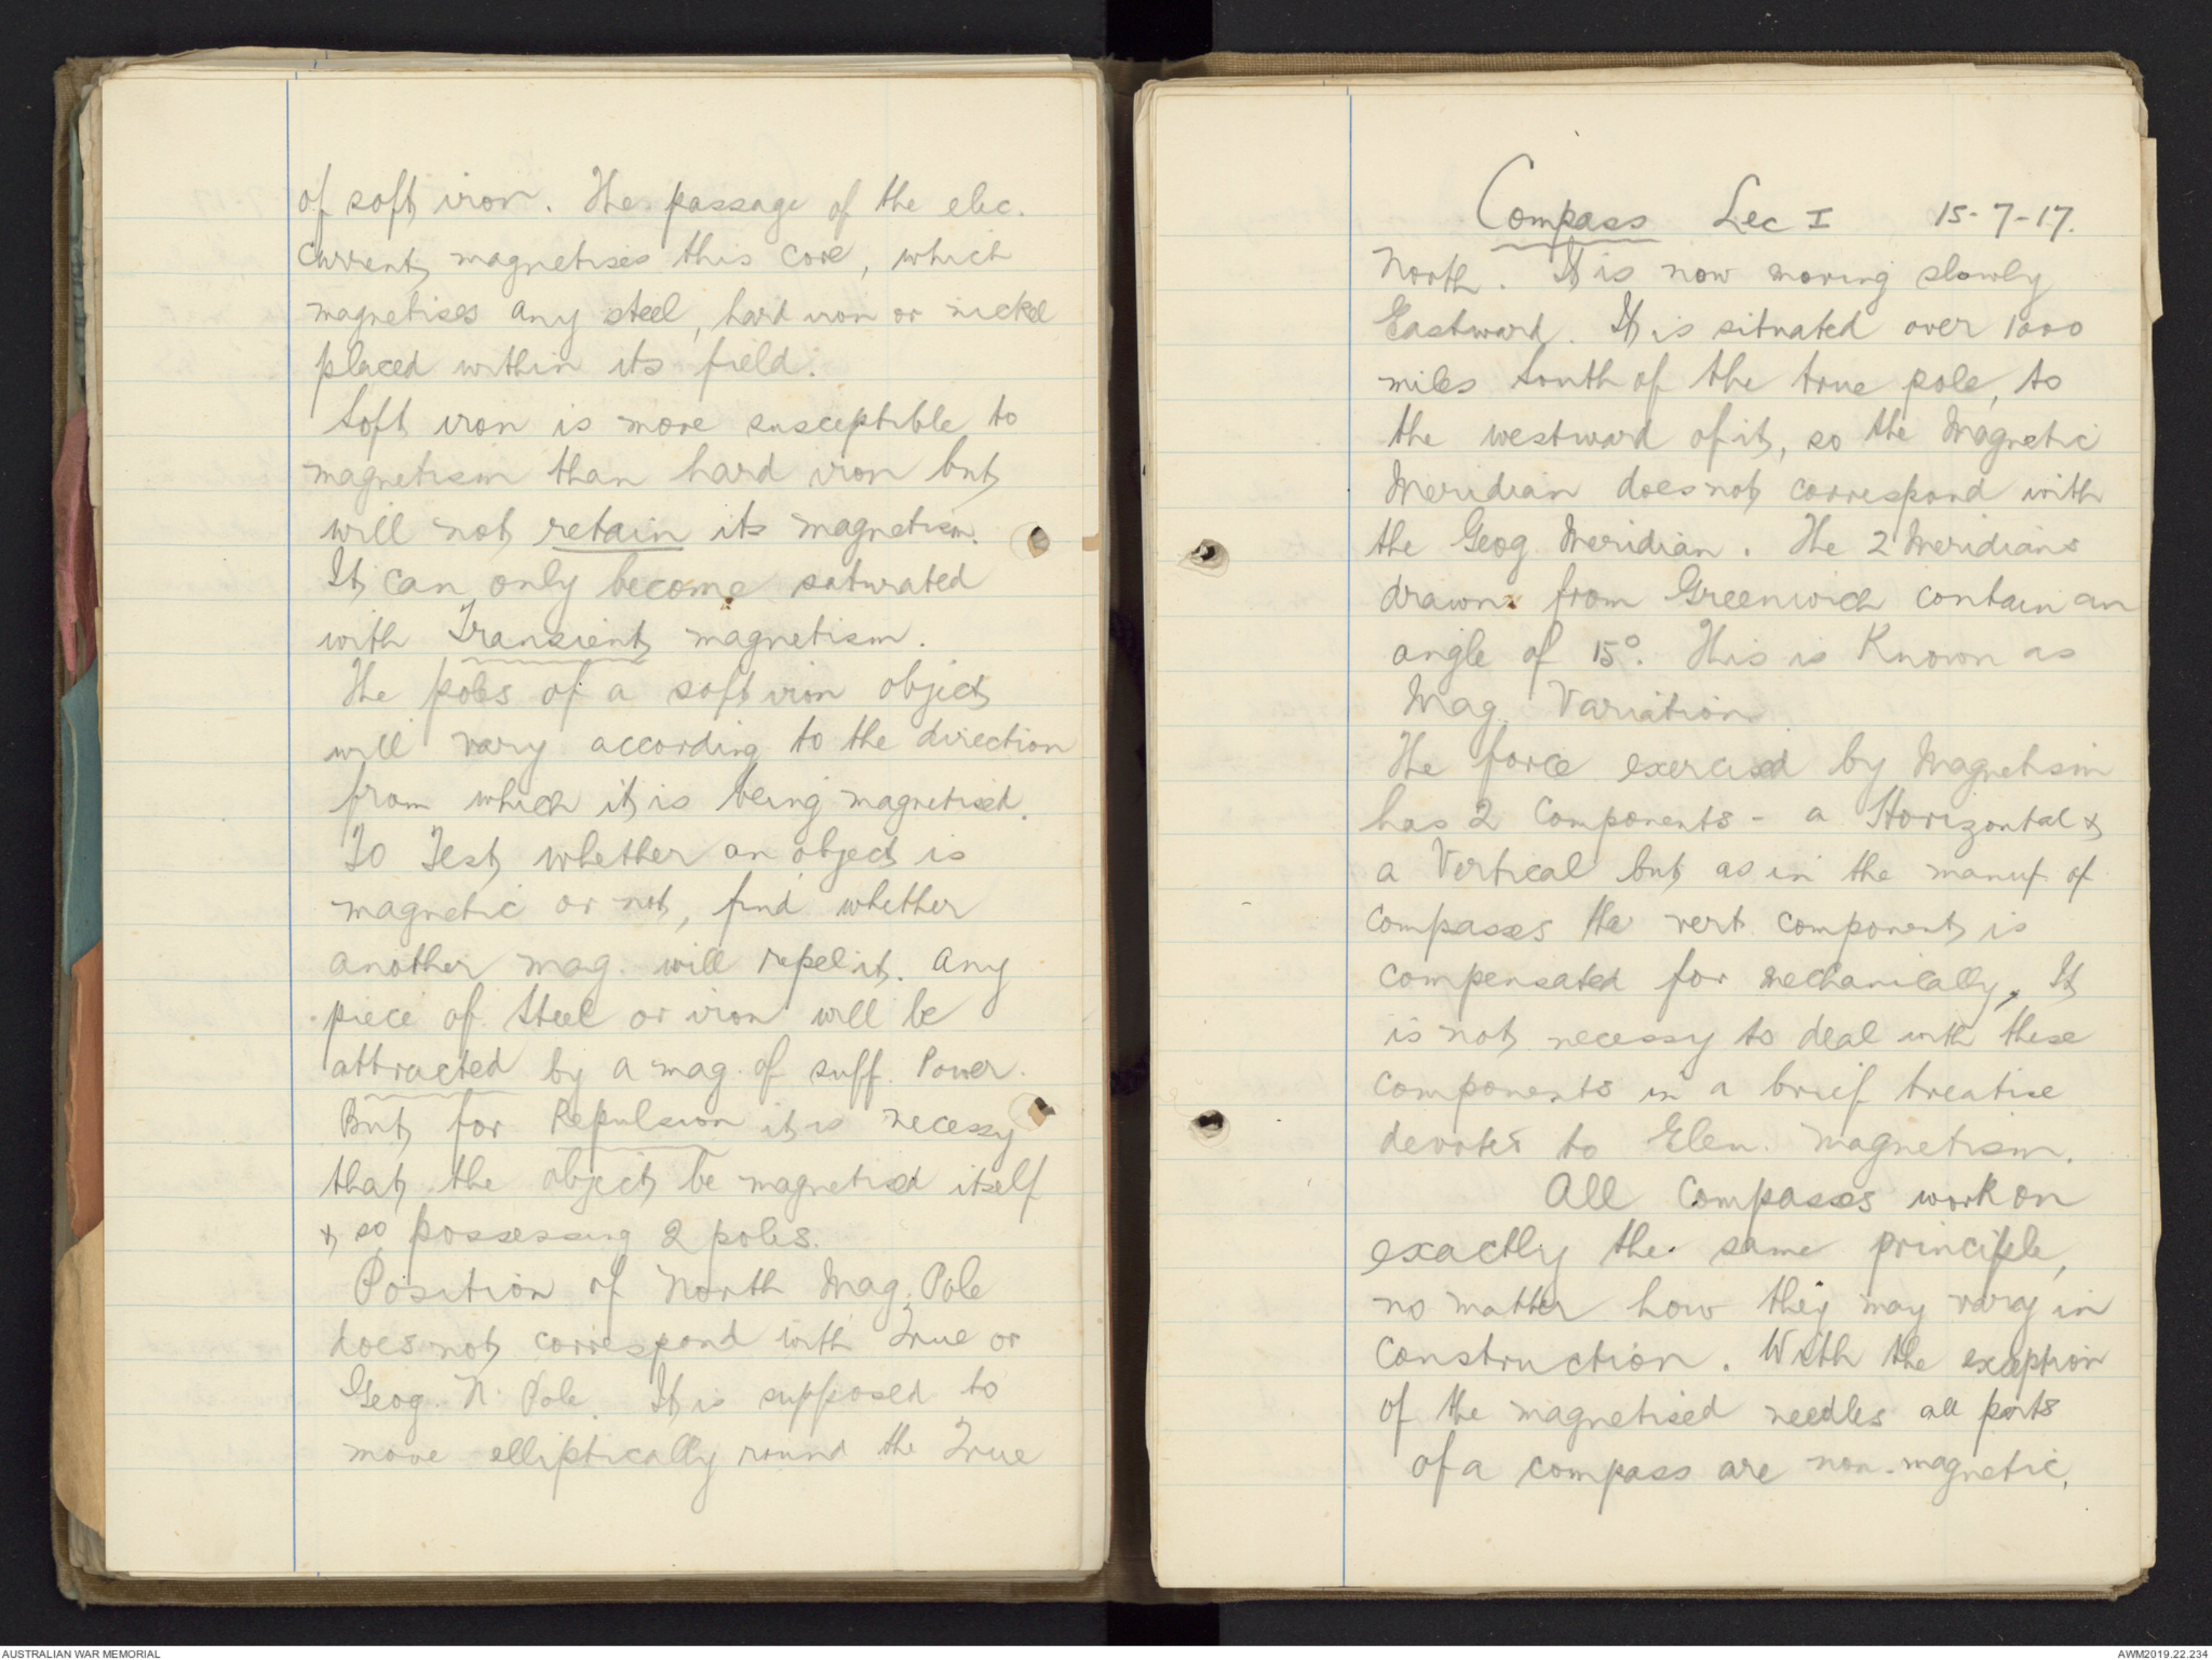 of soft iron. The passage of the elec.
current magnetises this core, which
magnetises any steel, hard iron or nickel
placed within its field.
Soft iron is more susceptible to
magnetism than hard iron but
will not retain its magnetism.
It can only become saturated
with Transient magnetism.
The poles of a soft iron object
will vary according to the direction
from which it is being magnetised.
To Test whether an object is
magnetic or not, find whether
another mag. will repel it. Any
piece of Steel or iron will be
attracted by a mag. of suff. Power.
But for Repulsion it is necessy
that the object be magnetised itself
& so possessing 2 poles.
Position of North Mag. Pole
does not correspond with True or
Geog. N. Pole. It is supposed to
move elliptically round the True
Compass Lec I 15-7-17.
North. It is now moving slowly
Eastward. It is situated over 1000
miles South of the true pole, to
the westward of it, so the Magnetic
Meridian does not correspond with
the Geog Meridian. The 2 Meridians
drawn from Greenwich contain an
angle of 15°. This is Known as
Mag. Variation
The force exercised by Magnetism
has 2 Components - a Horizontal &
a Vertical but as in the manuf. of
Compasses the vert component is
compensated for mechanically, It
is not necessy to deal with these
components in a brief treatise
devoted to Elem. magnetism.
All Compasses work on
exactly the same principle,
no matter how they may vary in
Construction. With the exception
of the magnetised needles all parts
of a compass are non-magnetic.
AUSTRALIAN WAR MEMORIAL
AWM2019.22.234